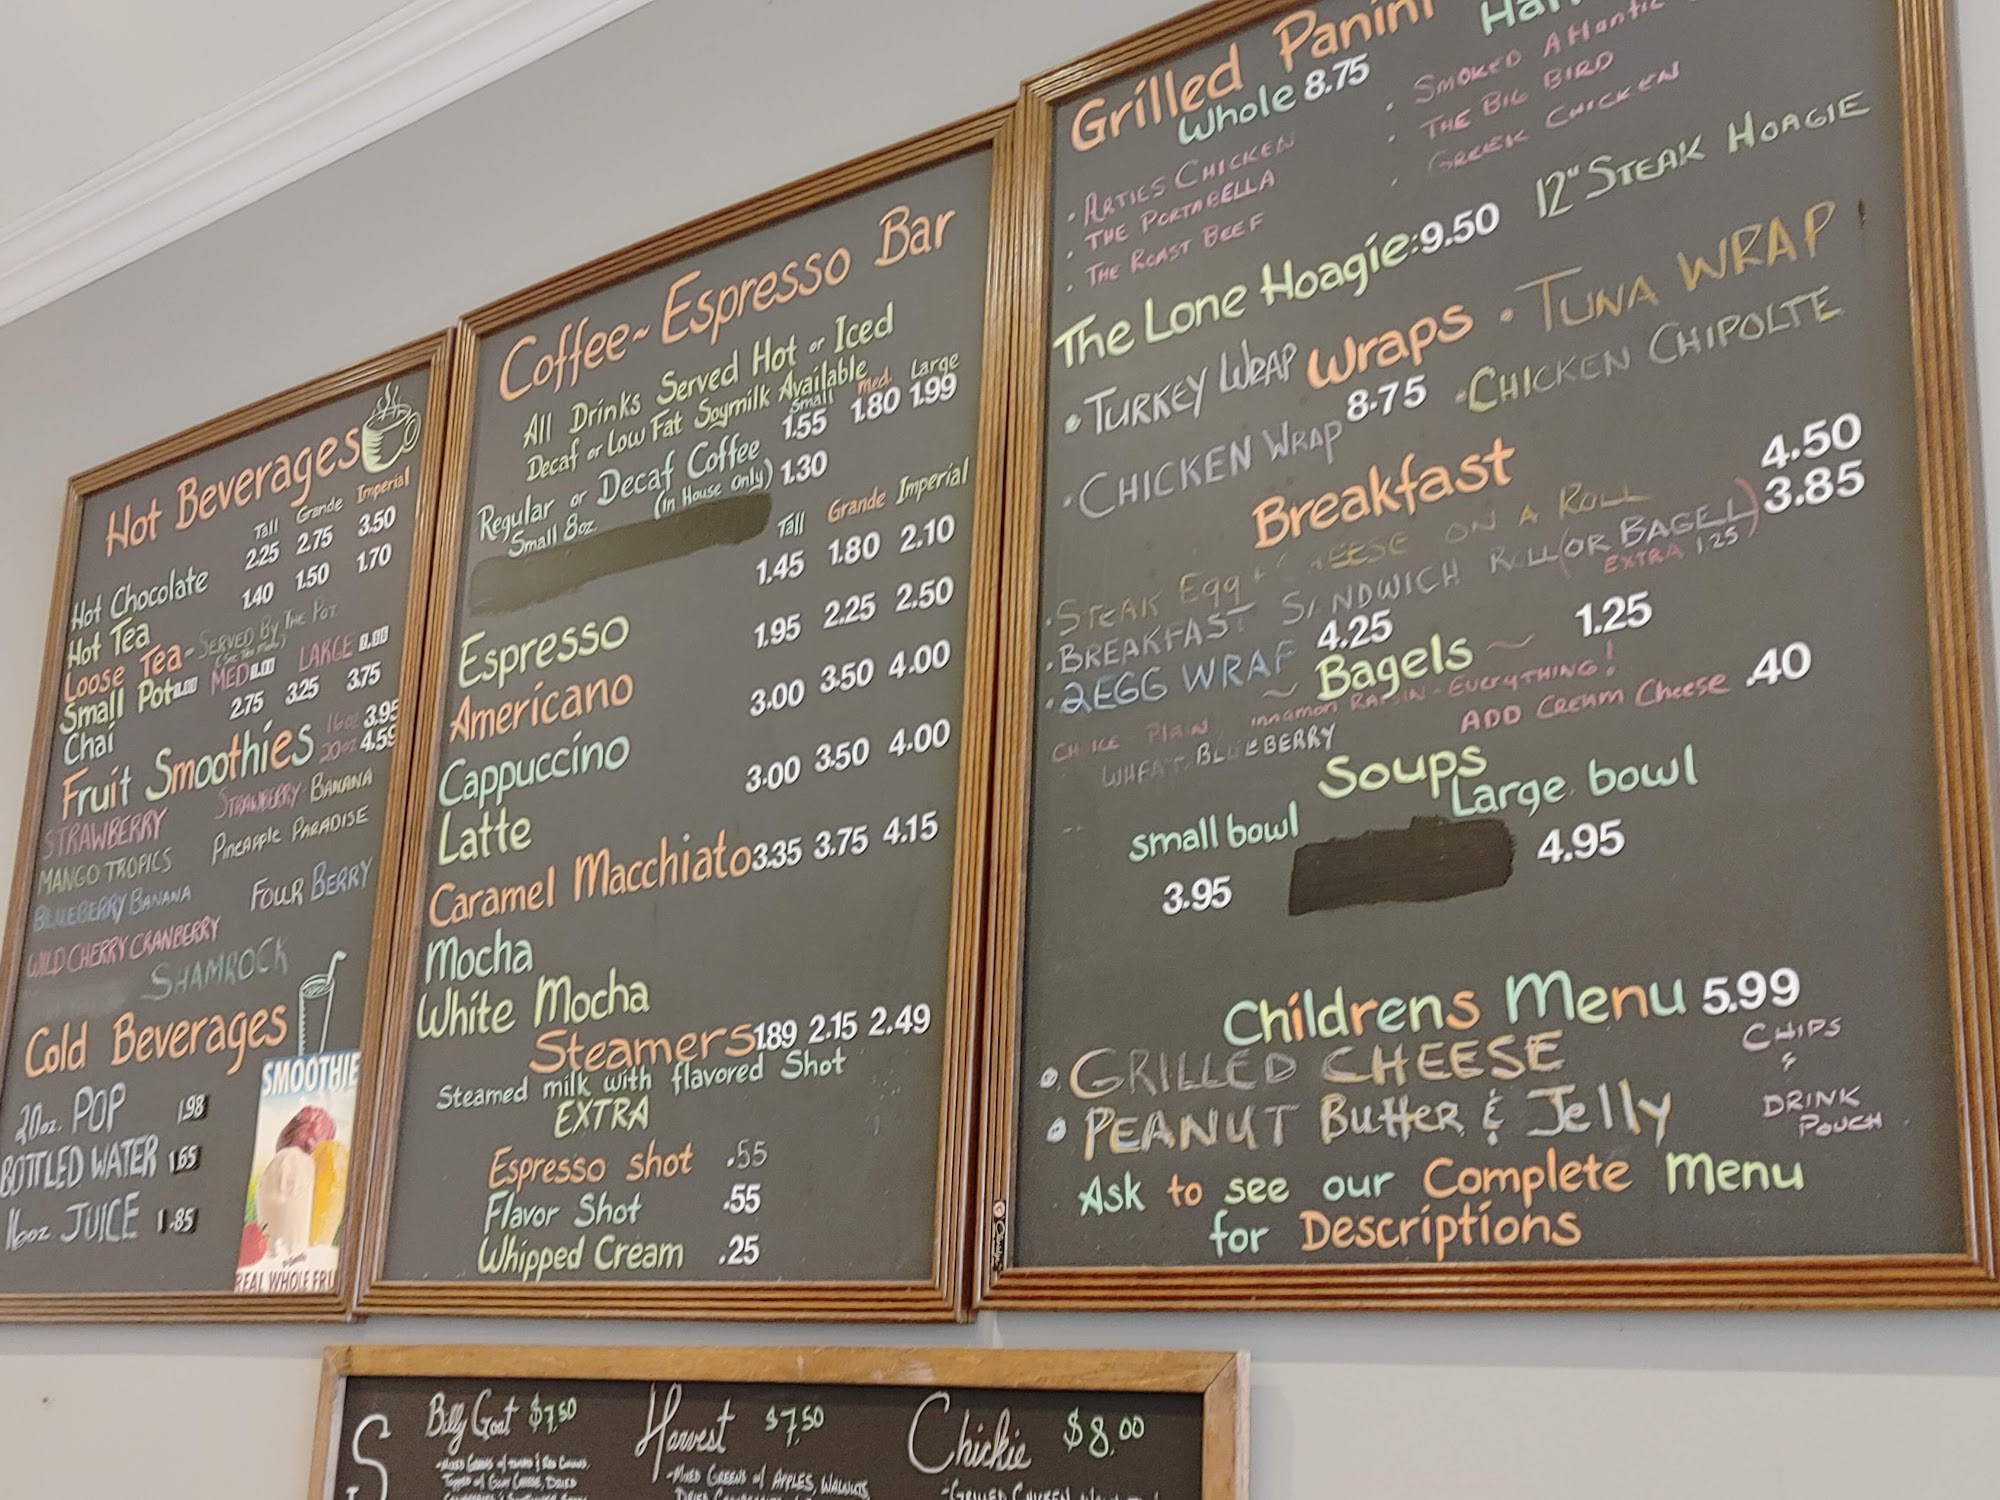 Hot Beverages
Tall Grande Imperial
Hot Chocolate 2.25 2.75 3.50
Hot Tea 1.40 1.50 1.70
Loose Tea - Served By The Pot
Small Pot 0.00 MED 0.00 LARGE 0.00
Chai 2.75 3.25 3.75
Fruit Smoothies 16oz 3.95
20oz 4.59
STRAWBERRY STRAWBERRY-BANANA
MANGO TROPICS Pineapple PARADISE
BLUEBERRY BANANA FOUR BERRY
WILD CHERRY CRANBERRY
SHAMROCK
Cold Beverages
20oz. POP 1.98
BOTTLED WATER 1.65
16oz JUICE 1.85
SMOOTHIE
REAL WHOLE FRU
Coffee~Espresso Bar
All Drinks Served Hot or Iced
Decaf or Low Fat Soymilk Available
Small med. Large
Regular or Decaf Coffee 1.55 1.80 1.99
Small 8oz. (In House Only) 1.30
Tall Grande Imperial
Espresso 1.45 1.80 2.10
Americano 1.95 2.25 2.50
Cappuccino 3.00 3.50 4.00
Latte 3.00 3.50 4.00
Caramel Macchiato 3.35 3.75 4.15
Mocha
White Mocha
Steamers 1.89 2.15 2.49
Steamed milk with flavored Shot
EXTRA
Espresso shot .55
Flavor Shot .55
Whipped Cream .25
Grilled Panini
Whole 8.75
• ARTIES CHICKEN
• THE PORTABELLA
• THE ROAST BEEF
• SMOKED Atlantic
• THE BIG BIRD
• GREEK CHICKEN
The Lone Hoagie: 9.50 12" STEAK HOAGIE
Wraps 8.75
• TURKEY WRAP
• TUNA WRAP
• CHICKEN WRAP
• CHICKEN CHIPOLTE
Breakfast
• STEAK Egg + CHEESE ON A ROLL 4.50
• BREAKFAST SANDWICH ROLL (OR BAGEL) 3.85
EXTRA 1.25
• 2 EGG WRAP 4.25
~ Bagels ~ 1.25
CHOICE - PLAIN, innamon RAISIN - EVERYTHING!
WHEAT. BLUEBERRY
ADD CREAM Cheese .40
Soups
small bowl Large bowl
3.95 4.95
Childrens Menu 5.99
• GRILLED CHEESE
• PEANUT Butter & Jelly
CHIPS
&
DRINK
POUCH
Ask to see our Complete Menu
for Descriptions
Billy Goat $7.50
Harvest $7.50
-MIXED GREENS w/ APPLES, WALNUTS,
Chickie $8.00
-GRILLED CHICKEN